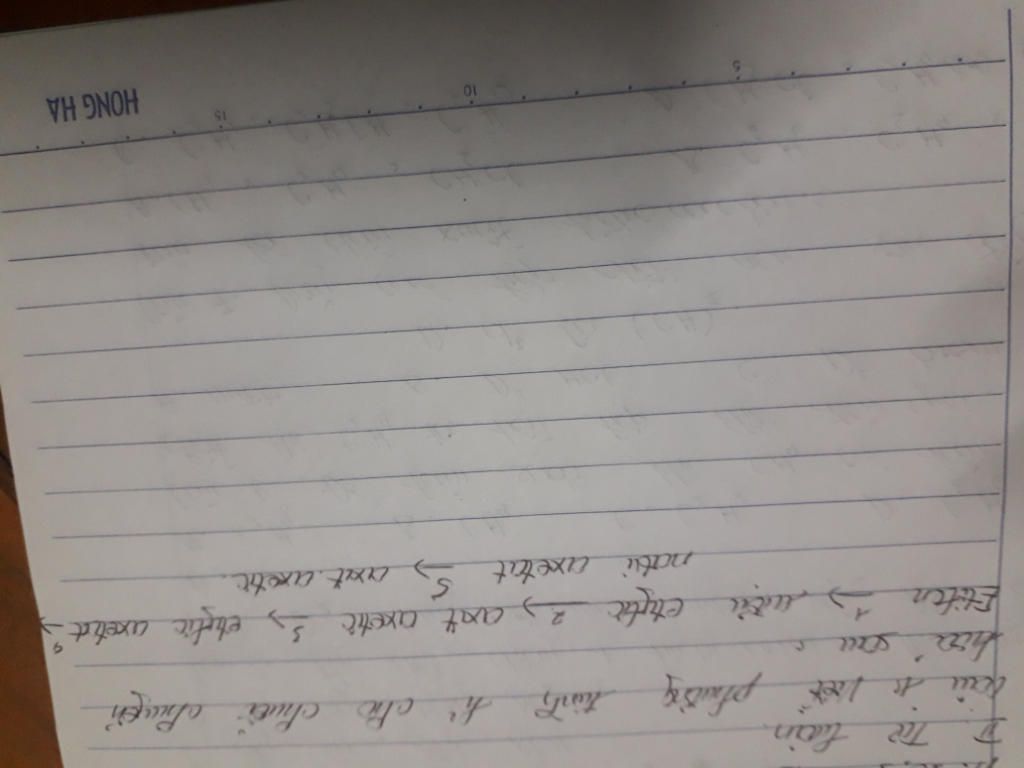 II Tự luận
câu 1: Viết phương trình h² cho chuỗi chuyển
hoá sau :
Etilen 1→ rượu etylic 2→ axit axetic 3→ etylic axetat 4→
natri axetat 5→ axit axetic.
5
10
15
HONG HA